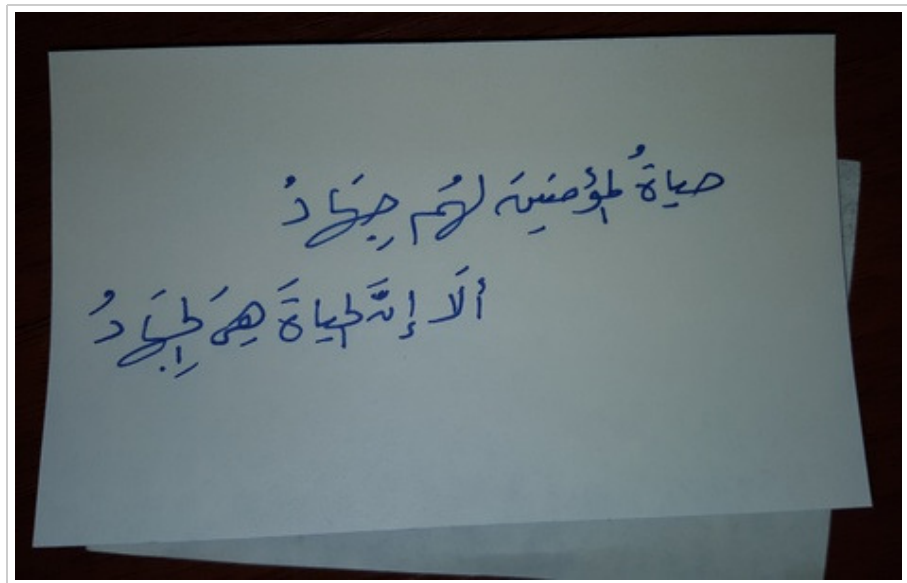 حياةُ المؤمنِينَ لهُم جِهَادُ
ألَا إنَّ الحياةَ هِيَ الجِهَادُ